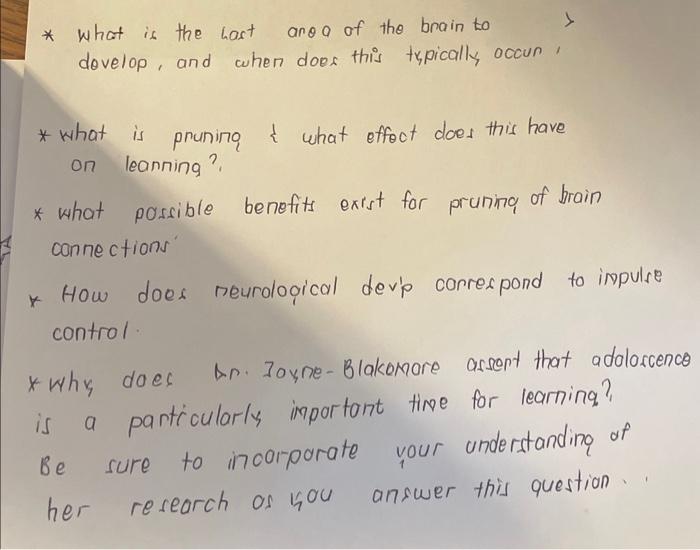 * what is the last area of the brain to
develop, and when does this typically occur,
* what is pruning & what effect does this have
on learning?
* what possible benefits exist for pruning of brain
connections
* How does neurological dev'p correspond to impulse
control.
* why does Dr. Jayne-Blakemore assert that adoloscence
is a particularly important time for learning?
Be sure to incorporate your understanding of
her research as you answer this question.